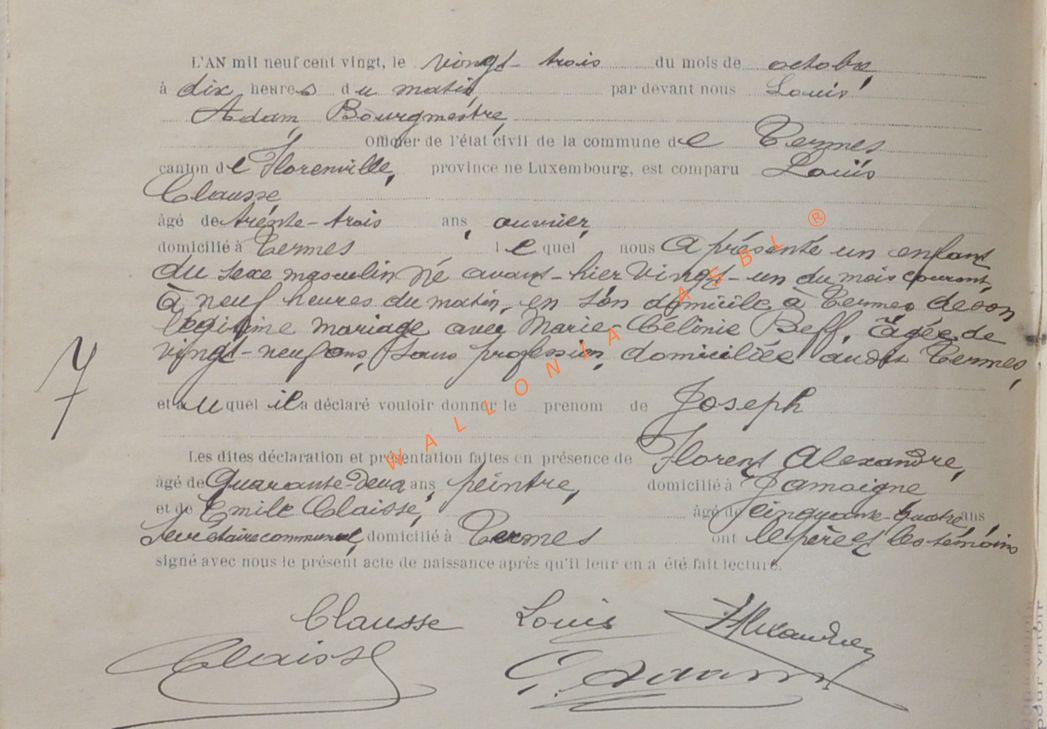 L'AN mil neuf cent vingt, le vingt-trois du mois de octobre
à dix heures du matin par devant nous Louis
Adam, Bourgmestre,
Officier de l'état civil de la commune de Termes
canton de Florenville, province ne Luxembourg, est comparu Louis
Clausse
âgé de trente-trois ans, ouvrier,
domicilié à Termes lequel nous a présenté un enfant
du sexe masculin né avant-hier vingt-un du mois courant,
à neuf heures du matin, en son domicile à Termes de son
légitime mariage avec Marie-Célonie Beff, âgée de
vingt-neuf ans, sans profession, domiciliée audit Termes,
7
et auquel il a déclaré vouloir donner le prenom de Joseph
Les dites déclaration et présentation faites en présence de Florent Alexandre,
âgé de Quarante-deux ans, peintre, domicilié à Jamoigne
et de Emile Claisse, âgé de cinquante-quatre ans
Secrétaire communal, domicilié à Termes ont le père et les témoins
signé avec nous le présent acte de naissance après qu'il leur en a été fait lecture.
Clausse Louis FAlexandre
Claisse
WALLONIA ASBL ®
pour valoir